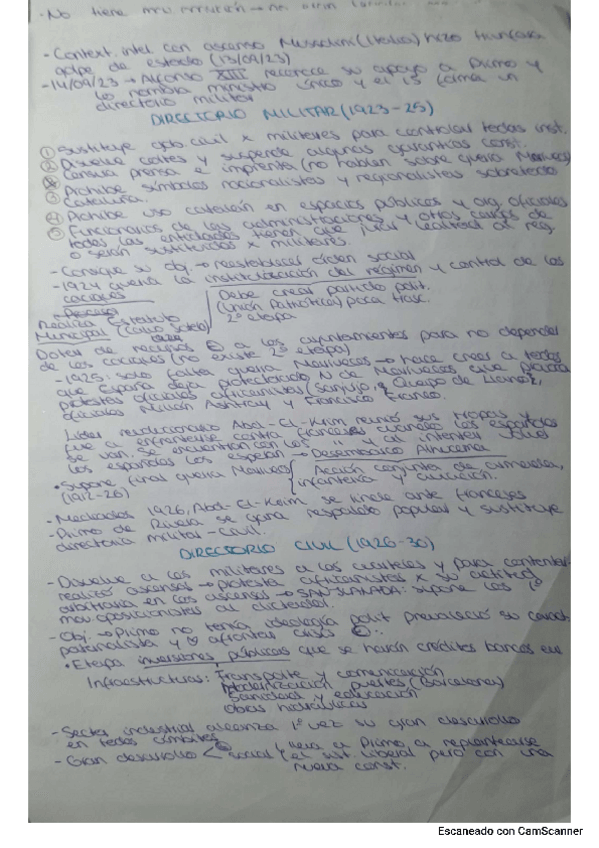 · No tiene
- Context. intel. con ascenso Mussolini (Italia) hizo
golpe de estado (13/09/23)
- 14/09/23 → Alfonso XIII reconoce su apoyo a Primo y
lo nombra ministro único y el 15 forma un
directorio militar
DIRECTORIO MILITAR (1923-25)
① Sustituye gob. civil x militares para controlar todas inst.
② Disuelve cortes y suspende algunas garantías const.
Censura prensa e imprenta (no hablen sobre guerra Marruecos)
③ Prohíbe símbolos nacionalistas y regionalistas sobretodo
Cataluña.
④ Prohibe uso catalán en espacios públicos y org. oficiales
⑤ Funcionarios de las administraciones y otros cargos de
todas las entidades tienen que jurar lealtad al reg.
o serán sustituidos x militares.
- Consigue su obj. → reestablecer orden social
- 1924 quería la institucionalización del régimen y control de los
caciques
Debe crear partido polit.
(Unión Patriótica) para
2º etapa
Realiza Estatuto
Municipal (Calvo Sotelo)
Dotar de recursos a los ayuntamientos para no depender
de los caciques (no existe 2º etapa)
- 1925: solo falta guerra Marruecos → hace creer a todos
que España deja protectorado N de Marruecos que
protestas oficiales africanistas (Sanjurjo, Queipo de Llano),
oficiales Millán Astray y Francisco Franco.
Líder revolucionario Abd-El-Krim reunió sus tropas y
fue a enfrentarse contra franceses cuando los españoles
se van. Se encuentran con los " y al intentar
los españoles los esperan → Desembarco Alhucemas
• Supone final guerra Marruecos
(1912-26)
Acción conjunta de armada,
infantería y aviación.
- Mediados 1926, Abd-El-Krim se rinde ante franceses
- Primo de Rivera se gana respaldo popular y sustituye
directorio militar - civil.
DIRECTORIO CIVIL (1926-30)
- Disuelve a los militares a los cuarteles y para contentar
realizó ascensos → protesta africanistas x su actitud
arbitraria en los ascensos → SANJUANADA: supone los 1º
mov. oposicionistas al dictador.
- Obj. → Primo no tenía ideología polit prevaleció su caract.
paternalista y afrontar crisis
• Etapa inversiones públicas que se harán créditos bancos
Infraestructuras: Transporte y comunicación
Modernización puertos (Barcelona)
Sanidad y educación
Obras hidráulicas
- Sector industrial alcanza 1º vez su gran desarrollo
en todos ámbitos
- Gran desarrollo social lleva a Primo a replantearse
el sist. liberal pero con una
nueva const.
Escaneado con CamScanner